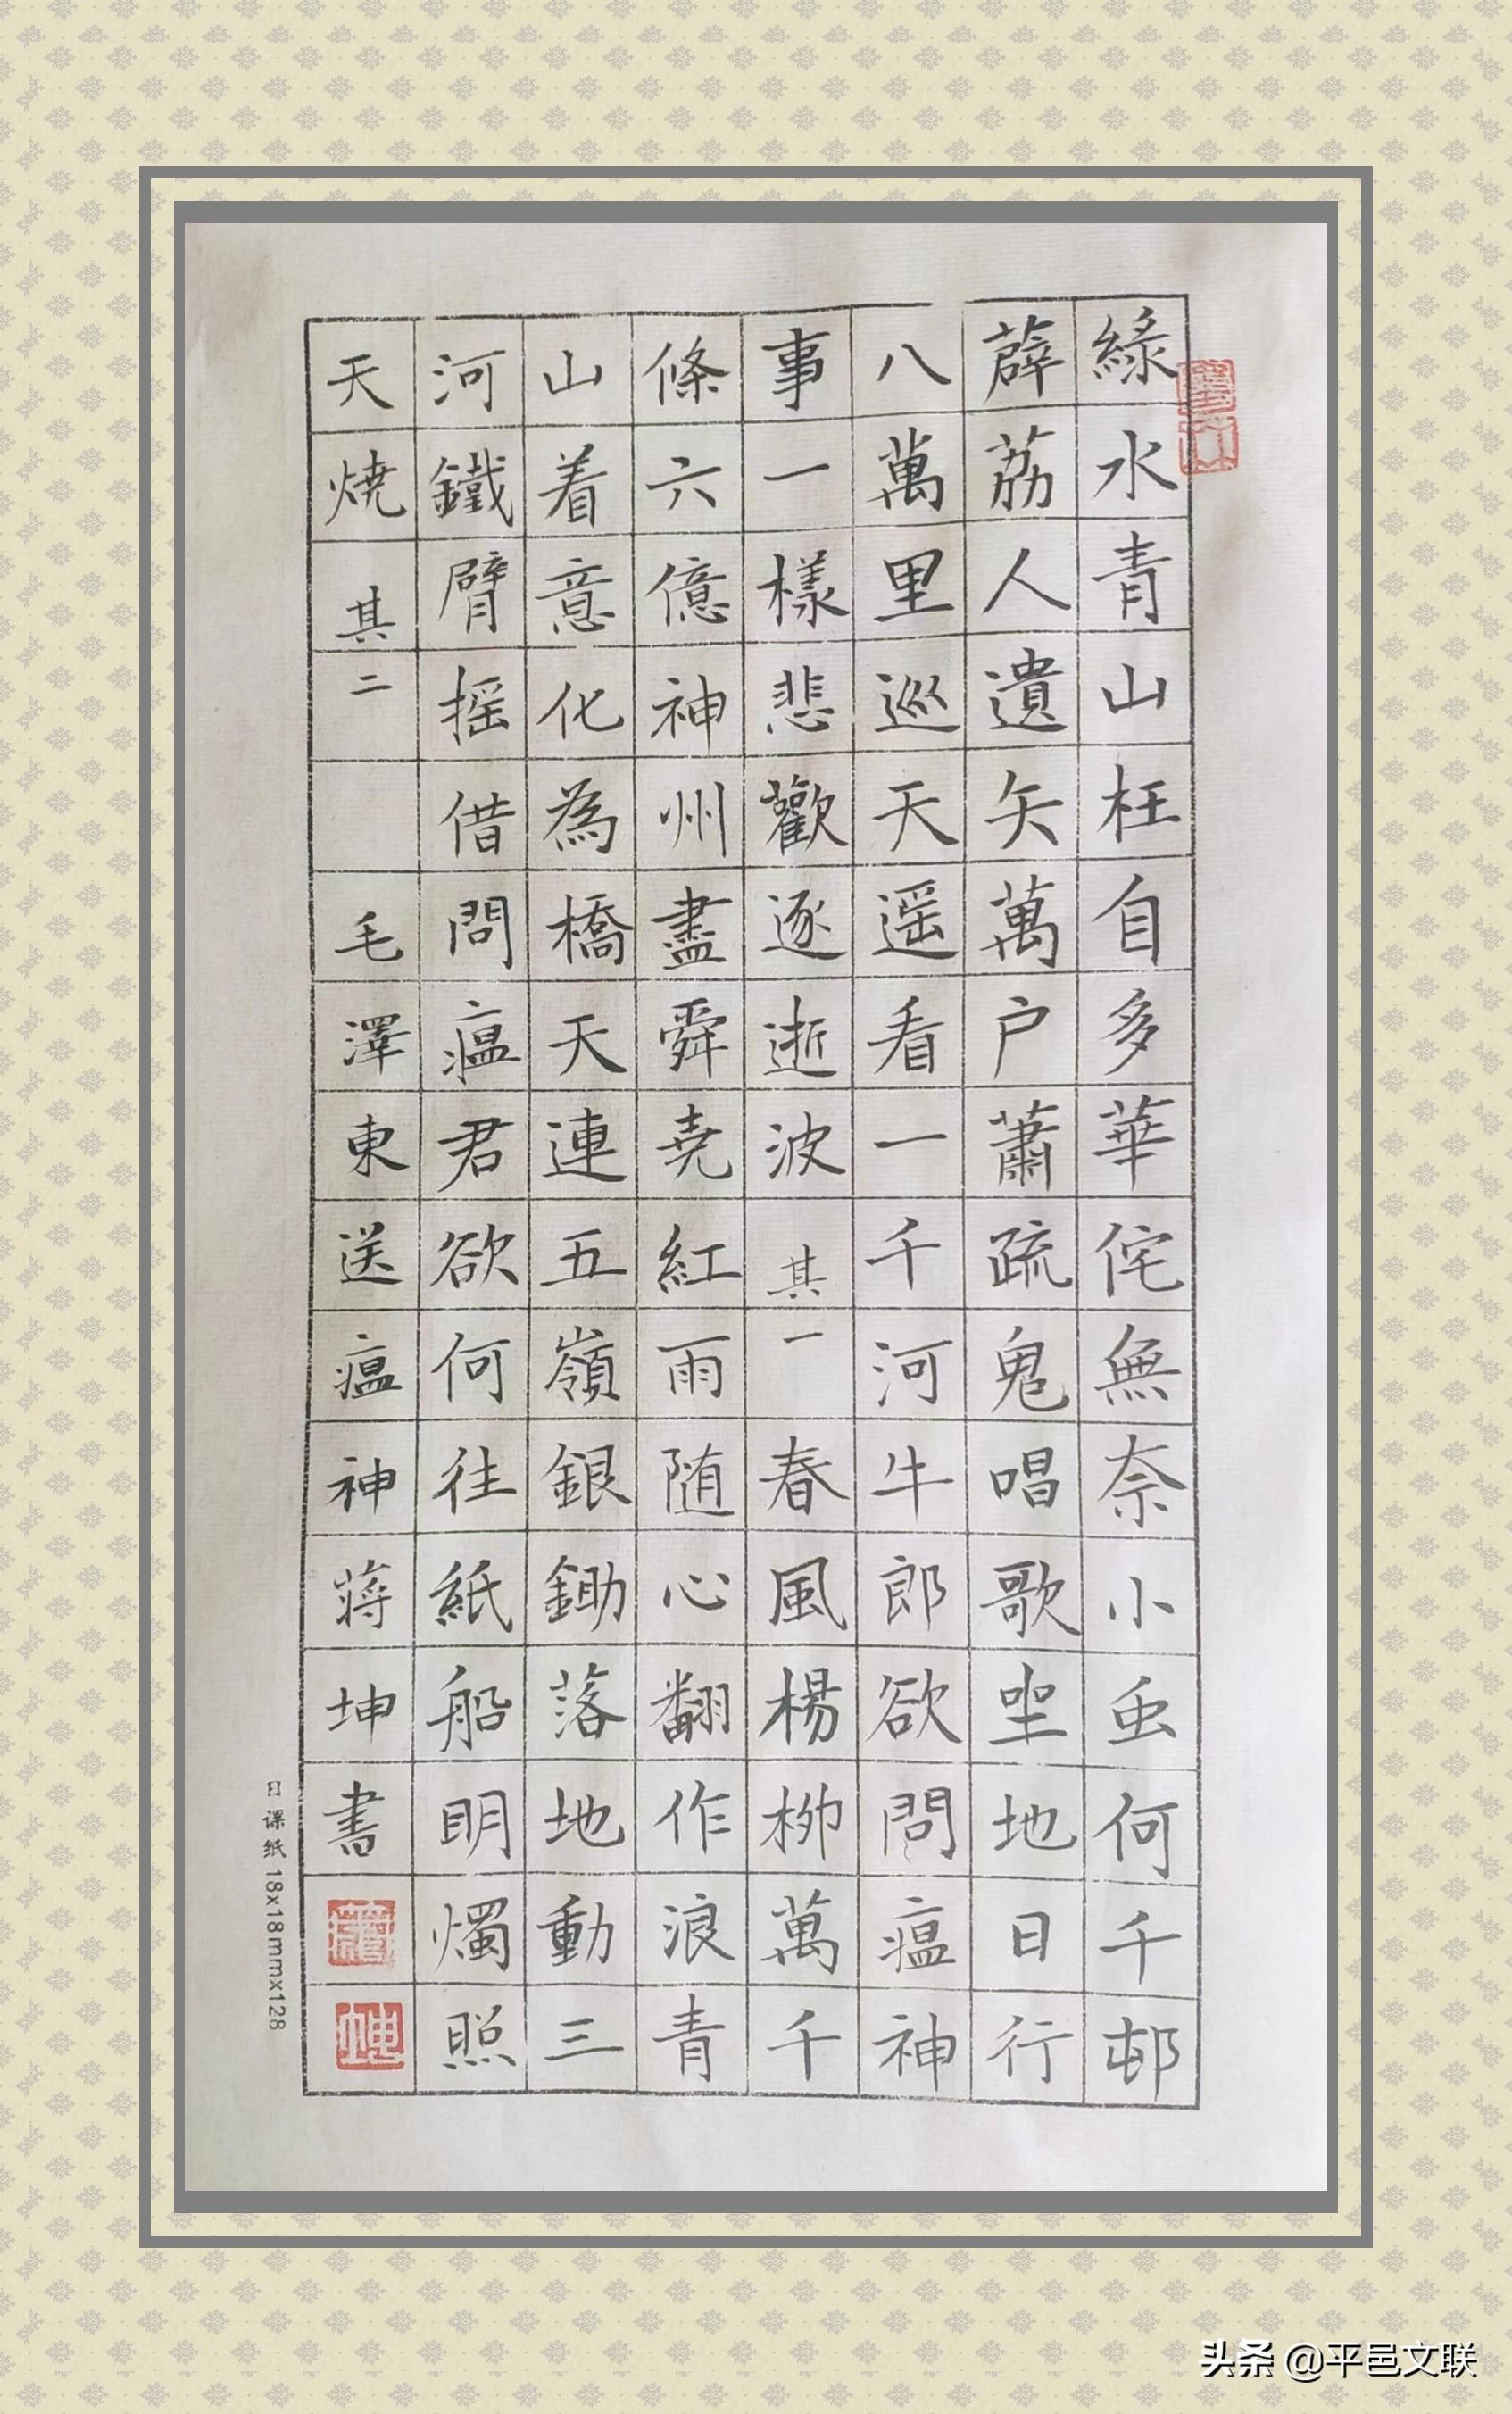 綠水青山枉自多華佗無奈小虫何千邨
薜荔人遺矢萬户蕭疏鬼唱歌坐地日行
八萬里巡天遥看一千河牛郎欲問瘟神
事一樣悲歡逐逝波其一春風楊柳萬千
條六億神州盡舜堯紅雨随心翻作浪青
山着意化為橋天連五嶺銀鋤落地動三
河鐵臂摇借問瘟君欲何往紙船明燭照
天燒其二毛澤東送瘟神蔣坤書
日课纸 18x18mmx128
头条 @平邑文联